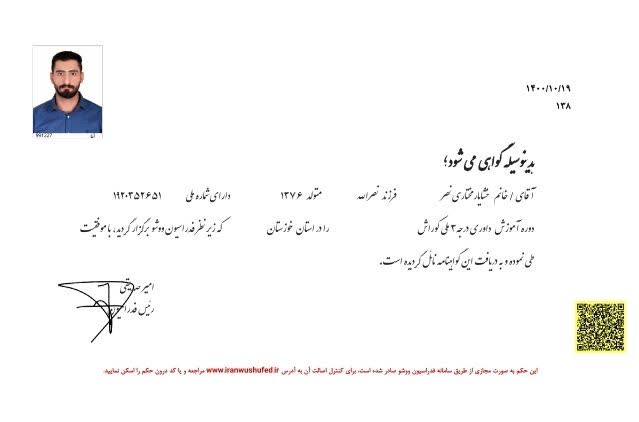 ۱۴۰۰/۱۰/۱۹
۱۳۸
991227
بدینوسیله گواهی می شود؛
آقای / خانم خشایار مختاری نصر فرزند نصرالله متولد ۱۳۷۶ دارای شماره ملی ۱۹۲۰۳۵۲۶۵۱
دوره آموزش داوری درجه ۳ ملی کوراش را در استان خوزستان که زیر نظر فدراسیون ووشو برگزار گردید، با موفقیت
طی نموده و به دریافت این گواهینامه نائل گردیده است.
امیر صدیقی
رئیس فدراسیون
این حکم به صورت مجازی از طریق سامانه فدراسیون ووشو صادر شده است، برای کنترل اصالت آن به آدرس www.iranwushufed.ir مراجعه و یا کد درون حکم را اسکن نمایید.